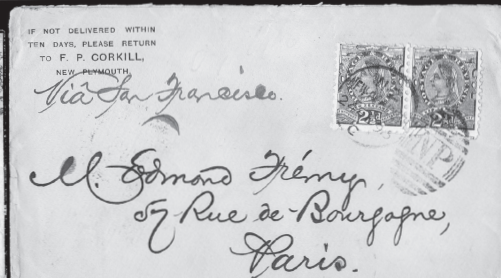 IF NOT DELIVERED WITHIN
TEN DAYS, PLEASE RETURN
TO F. P. CORKILL,
NEW PLYMOUTH.
Via San Francisco.
2½d
2½d
NP
M. Edmond Frémy,
57 Rue de Bourgogne,
Paris.